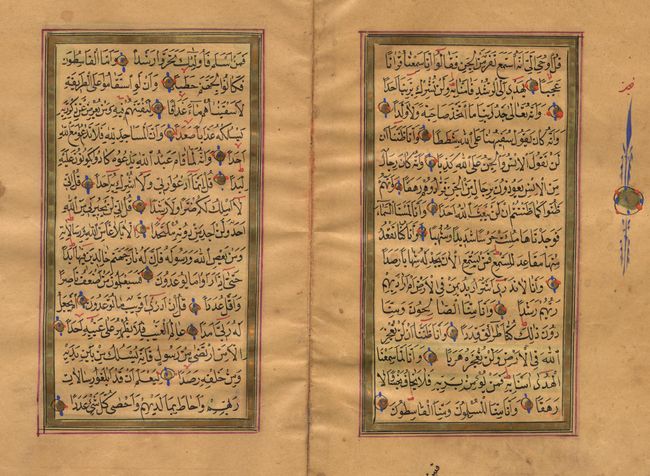 قُلْ اُوحِىَ اِلَىَّ اَنَّهُ اسْتَمَعَ نَفَرٌ مِنَ الْجِنِّ فَقَالُوا اِنَّا سَمِعْنَا قُرْآنًا
عَجَبًا يَهْدِى اِلَى الرُّشْدِ فَآمَنَّا بِهِ وَلَنْ نُشْرِكَ بِرَبِّنَا اَحَدًا
وَاَنَّهُ تَعَالَى جَدُّ رَبِّنَا مَا اتَّخَذَ صَاحِبَةً وَلَا وَلَدًا
وَاَنَّهُ كَانَ يَقُولُ سَفِيهُنَا عَلَى اللهِ شَطَطًا وَاَنَّا ظَنَنَّا اَنْ
لَنْ تَقُولَ الْاِنْسُ وَالْجِنُّ عَلَى اللهِ كَذِبًا وَاَنَّهُ كَانَ رِجَالٌ
مِنَ الْاِنْسِ يَعُوذُونَ بِرِجَالٍ مِنَ الْجِنِّ فَزَادُوهُمْ رَهَقًا وَاَنَّهُمْ
ظَنُّوا كَمَا ظَنَنْتُمْ اَنْ لَنْ يَبْعَثَ اللهُ اَحَدًا وَاَنَّا لَمَسْنَا السَّمَاءَ
فَوَجَدْنَاهَا مُلِئَتْ حَرَسًا شَدِيدًا وَشُهُبًا وَاَنَّا كُنَّا نَقْعُدُ
مِنْهَا مَقَاعِدَ لِلسَّمْعِ فَمَنْ يَسْتَمِعِ الْآنَ يَجِدْ لَهُ شِهَابًا رَصَدًا
وَاَنَّا لَا نَدْرِى اَشَرٌّ اُرِيدَ بِمَنْ فِى الْاَرْضِ اَمْ اَرَادَ بِهِمْ
رَبُّهُمْ رَشَدًا وَاَنَّا مِنَّا الصَّالِحُونَ وَمِنَّا
دُونَ ذَلِكَ كُنَّا طَرَائِقَ قِدَدًا وَاَنَّا ظَنَنَّا اَنْ لَنْ نُعْجِزَ
اللهَ فِى الْاَرْضِ وَلَنْ نُعْجِزَهُ هَرَبًا وَاَنَّا لَمَّا سَمِعْنَا
الْهُدَى آمَنَّا بِهِ فَمَنْ يُؤْمِنْ بِرَبِّهِ فَلَا يَخَافُ بَخْسًا وَلَا
رَهَقًا وَاَنَّا مِنَّا الْمُسْلِمُونَ وَمِنَّا الْقَاسِطُونَ
فَمَنْ اَسْلَمَ فَاُولَئِكَ تَحَرَّوْا رَشَدًا وَاَمَّا الْقَاسِطُونَ
فَكَانُوا لِجَهَنَّمَ حَطَبًا وَاَنْ لَوِ اسْتَقَامُوا عَلَى الطَّرِيقَةِ
لَاَسْقَيْنَاهُمْ مَاءً غَدَقًا لِنَفْتِنَهُمْ فِيهِ وَمَنْ يُعْرِضْ عَنْ ذِكْرِ رَبِّهِ
يَسْلُكْهُ عَذَابًا صَعَدًا وَاَنَّ الْمَسَاجِدَ لِلَّهِ فَلَا تَدْعُوا مَعَ اللهِ
اَحَدًا وَاَنَّهُ لَمَّا قَامَ عَبْدُ اللهِ يَدْعُوهُ كَادُوا يَكُونُونَ عَلَيْهِ
لِبَدًا قُلْ اِنَّمَا اَدْعُو رَبِّى وَلَا اُشْرِكُ بِهِ اَحَدًا قُلْ اِنِّى
لَا اَمْلِكُ لَكُمْ ضَرًّا وَلَا رَشَدًا قُلْ اِنِّى لَنْ يُجِيرَنِى مِنَ اللهِ
اَحَدٌ وَلَنْ اَجِدَ مِنْ دُونِهِ مُلْتَحَدًا اِلَّا بَلَاغًا مِنَ اللهِ وَرِسَالَاتِهِ
وَمَنْ يَعْصِ اللهَ وَرَسُولَهُ فَاِنَّ لَهُ نَارَ جَهَنَّمَ خَالِدِينَ فِيهَا اَبَدًا
حَتَّى اِذَا رَاَوْا مَا يُوعَدُونَ فَسَيَعْلَمُونَ مَنْ اَضْعَفُ نَاصِرًا
وَاَقَلُّ عَدَدًا قُلْ اِنْ اَدْرِى اَقَرِيبٌ مَا تُوعَدُونَ اَمْ يَجْعَلُ
لَهُ رَبِّى اَمَدًا عَالِمُ الْغَيْبِ فَلَا يُظْهِرُ عَلَى غَيْبِهِ اَحَدًا
اِلَّا مَنِ ارْتَضَى مِنْ رَسُولٍ فَاِنَّهُ يَسْلُكُ مِنْ بَيْنِ يَدَيْهِ
وَمِنْ خَلْفِهِ رَصَدًا لِيَعْلَمَ اَنْ قَدْ اَبْلَغُوا رِسَالَاتِ
رَبِّهِمْ وَاَحَاطَ بِمَا لَدَيْهِمْ وَاَحْصَى كُلَّ شَىْءٍ عَدَدًا